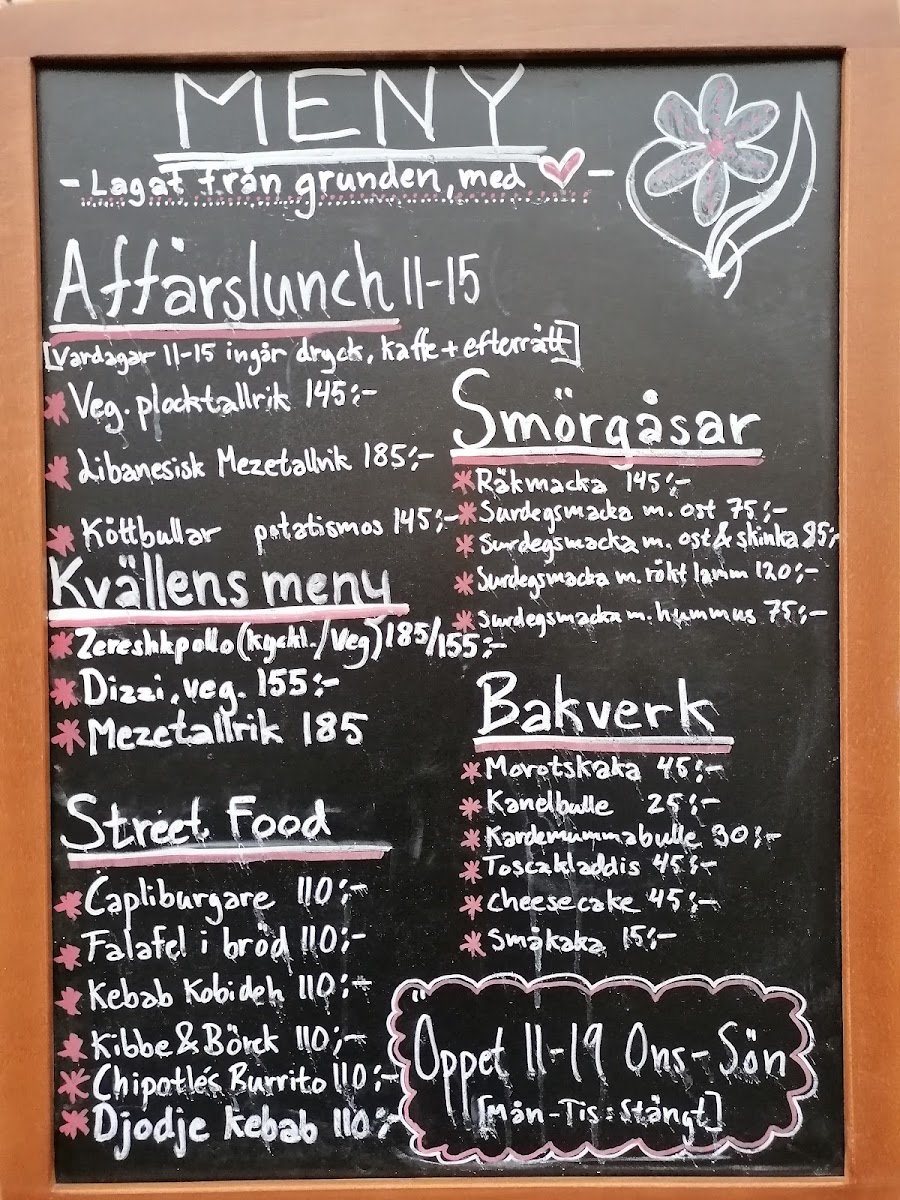 MENY
- Lagat från grunden, med ♥ -
Affärslunch 11-15
[Vardagar 11-15 ingår dryck, kaffe + efterrätt]
* Veg. plocktallrik 145:-
* Libanesisk Mezetallrik 185:-
* Köttbullar potatismos 145:-
Kvällens meny
* Zereshkpollo (kyckl./Veg) 185/155:-
* Dizzi, veg. 155:-
* Mezetallrik 185
Street Food
* Capliburgare 110:-
* Falafel i bröd 110:-
* Kebab Kobideh 110:-
* Kibbe & Börek 110:-
* Chipotlés Burrito 110:-
* Djodje kebab 110:-
Smörgåsar
* Räkmacka 145:-
* Surdegsmacka m. ost 75:-
* Surdegsmacka m. ost & skinka 85:-
* Surdegsmacka m. rökt lamm 120:-
* Surdegsmacka m. hummus 75:-
Bakverk
* Morotskaka 45:-
* Kanelbulle 25:-
* Kardemummabulle 30:-
* Toscakladdis 45:-
* Cheesecake 45:-
* Småkaka 15:-
Öppet 11-19 Ons-Sön
[Mån-Tis: Stängt]